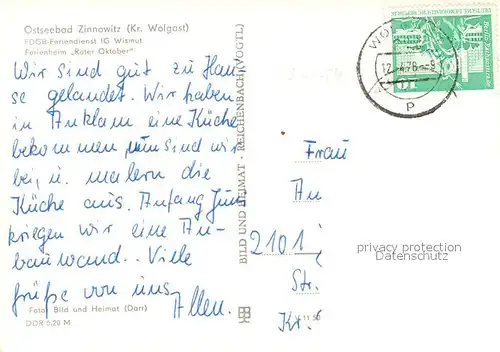 Ostseebad Zinnowitz (Kr. Wolgast)
FDGB-Feriendienst IG Wismut
Ferienheim „Roter Oktober“
Wir sind gut zu Hau-
se gelandet. Wir haben
in Anklam eine Küche
bekommen, nun sind wir
bei, u. malern die
Küche aus. Anfang Juni
kriegen wir eine An-
bauwand.. Viele
Grüße von uns
Allen.
Foto: Bild und Heimat (Darr)
DDR 0,20 M
BILD UND HEIMAT · REICHENBACH (VOGTL)
12.4.78-9
P
10
Frau
An
2101
Str.
Kr.
privacy protection
Datenschutz